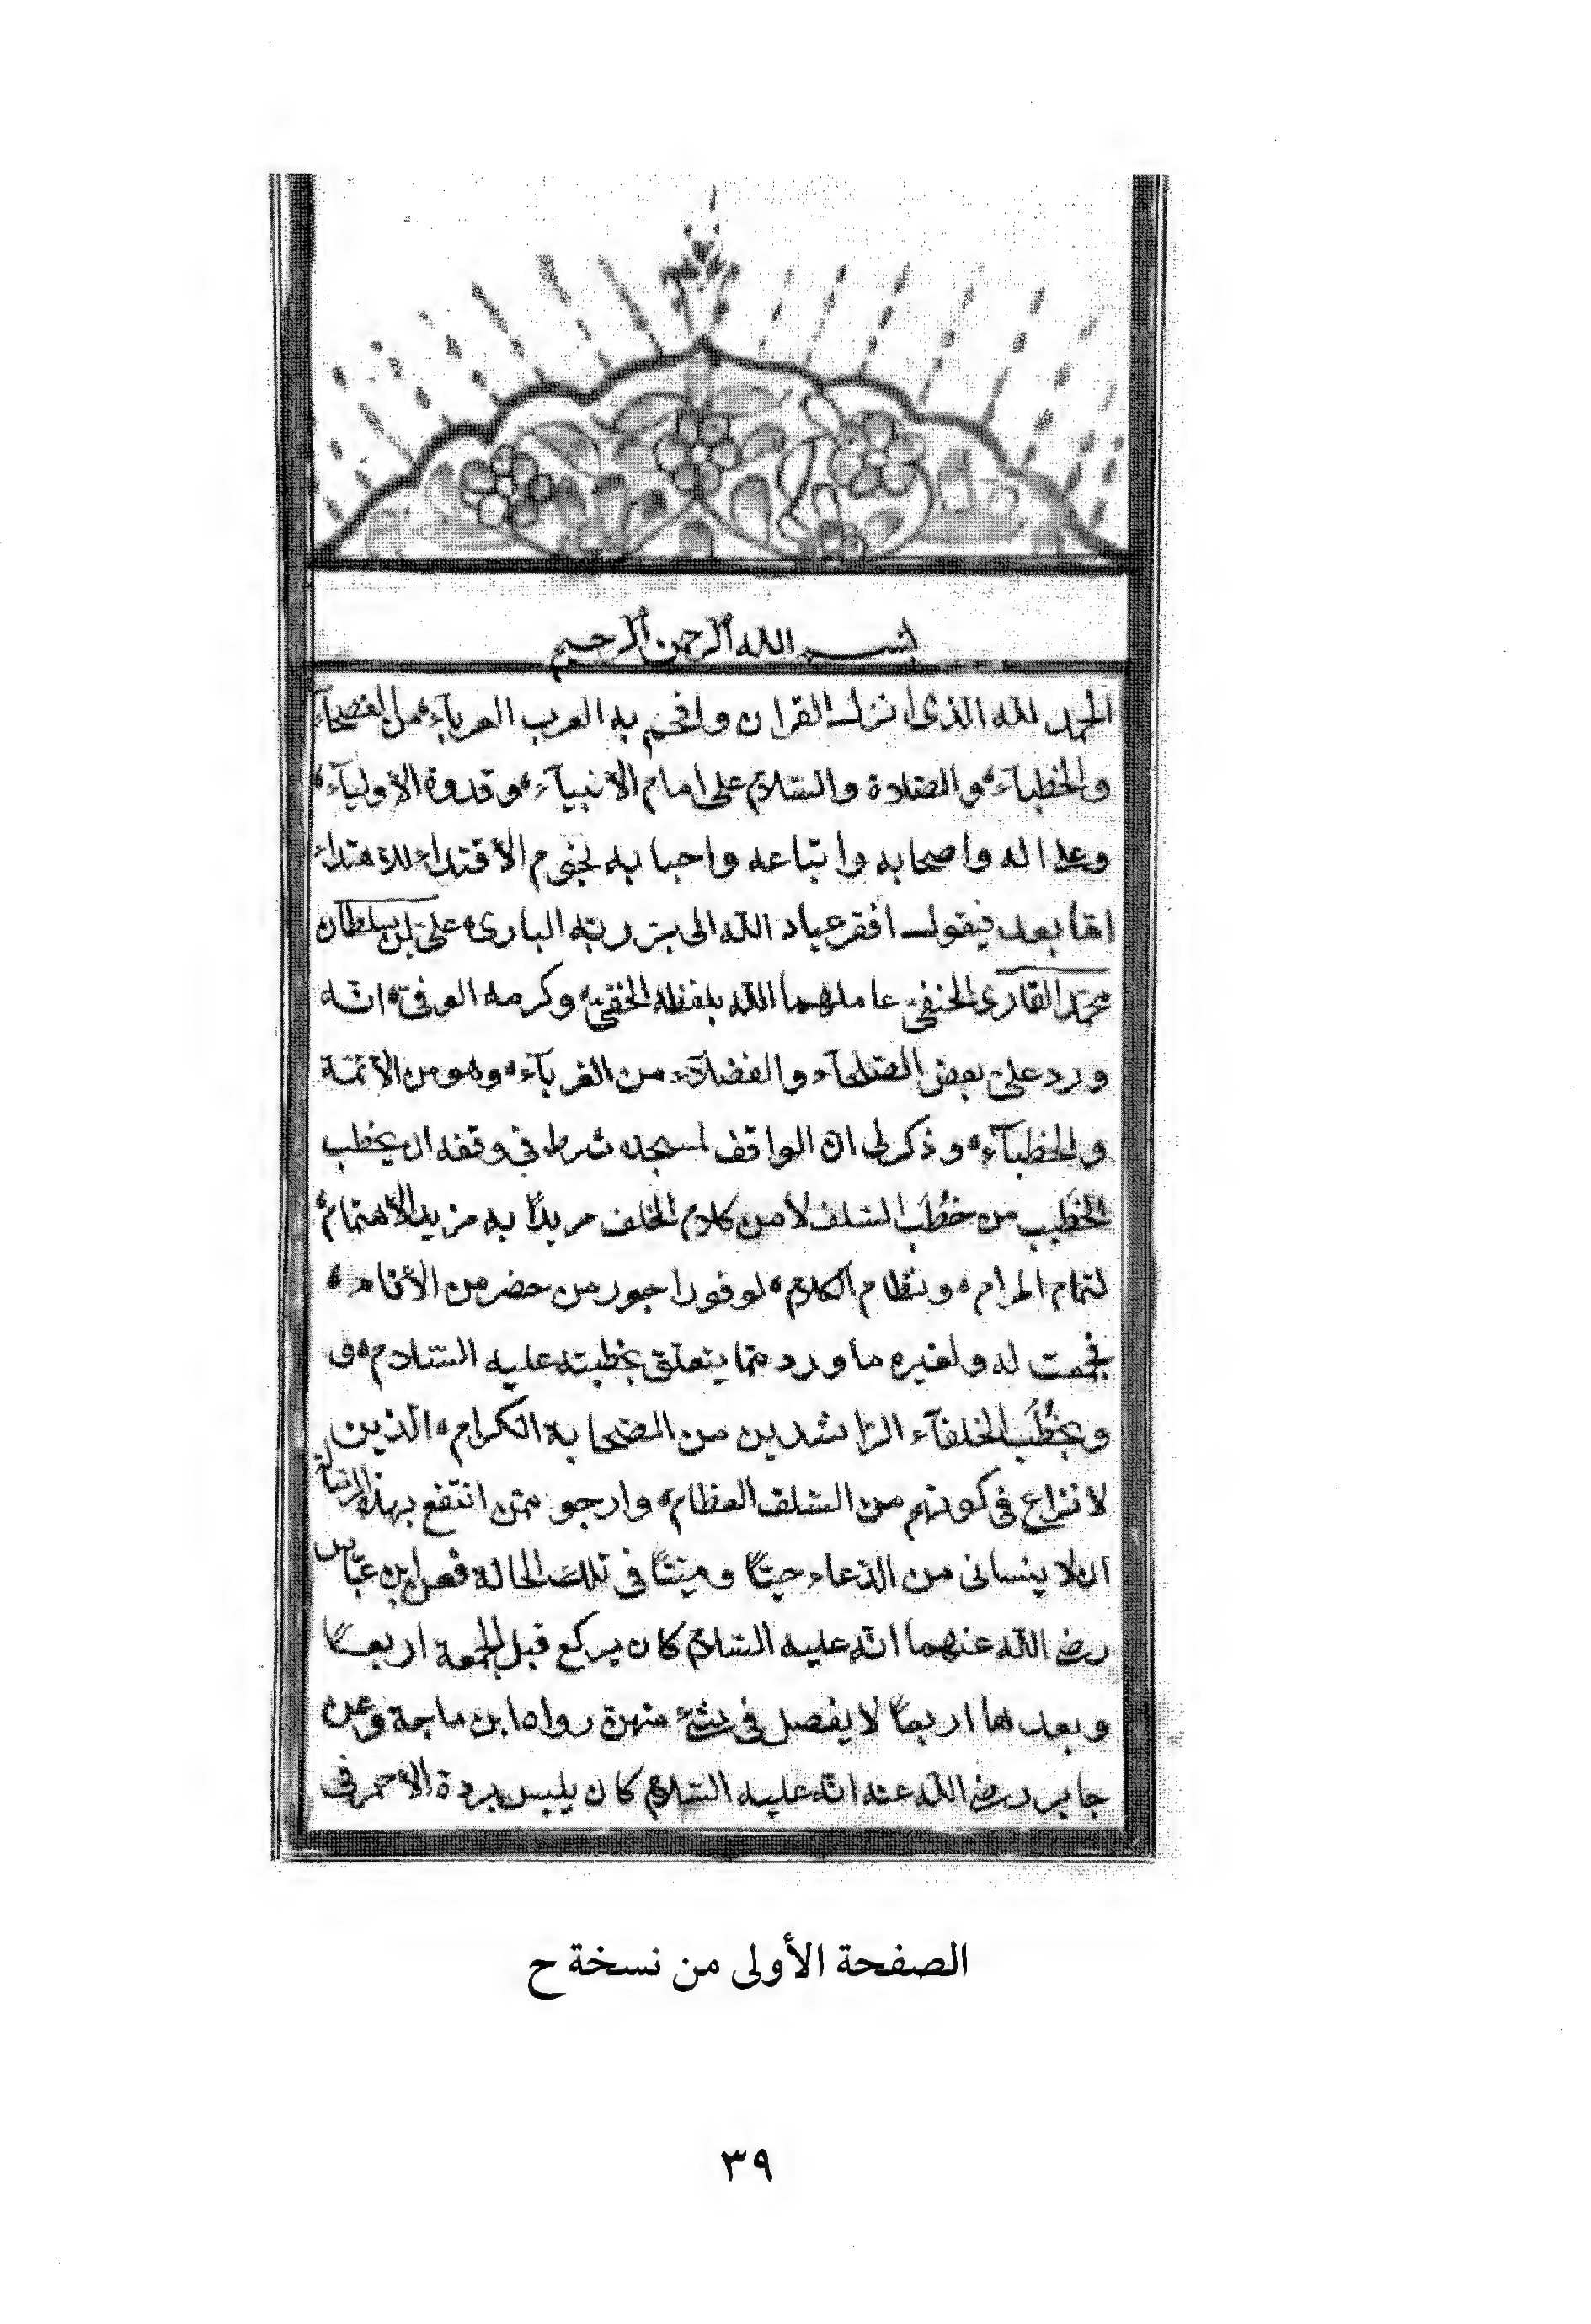 بسم الله الرحمن الرحيم
الحمد لله الذى انزل القران وافحم به العرب العرباء من الفصحآء
والخطبآء والصلاة والسّلام على امام الانبيآء وقدوة الأوليآء
وعلى اله واصحابه واتباعه واحبابه نجوم الاقتداء للاهتداء
امّا بعد فيقول افقر عباد الله الى برّ ربّه البارى علىّ بن سلطان
محمّد القارى الحنفىّ عاملهما الله بلطفه الخفىّ وكرمه الوفىّ انّه
ورد علىّ بعض الصّلحآء والفضلآء من الغربآء وهو من الآئمّة
والخطبآء وذكر لى انّ الواقف لمسجده شرط فى وقفه ان يخطب
الخطيب من خطب السّلف لا من كلام الخلف مريدًا به مزيد الاهتمام
لتمام المرام ونظام الكلام لوفور اجور من حضر من الأنام
فجمعت له ولغيره ما ورد ممّا يتعلّق بخطبته عليه السّلام
وبخُطَب الخلفآء الرّاشدين من الصّحابة الكرام الّذين
لا نزاع فى كونهم من السّلف العظام وارجو ممّن انتفع بهذه الرّسالة
ان لا ينسانى من الدّعاء حيًّا وميّتًا فى تلك الحالة فعن ابن عبّاس
رضى الله عنهما انّه عليه السّلام كان يركع قبل الجمعة اربعًا
وبعدها اربعًا لا يفصل فى شئ منهنّ رواه ابن ماجة وعن
جابر رضى الله عنه انّه عليه السّلام كان يلبس بردة الأحمر فى
الصفحة الأولى من نسخة ح
٣٩